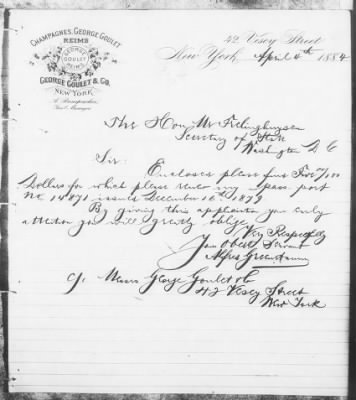 CHAMPAGNES, GEORGE GOULET
REIMS
GEORGE GOULET REIMS
GEORGE GOULET & Co.
NEW YORK
Gen'l Manager
42 Vesey Street
New York, April 4th 1884
The Hon Mr Frelinghuysen
Secretary of State
Washington D C
Sir:
Enclosed please find Five 00/100
Dollars for which please renew my pass port
No 14871 issued December 10th 1879
By giving this application your early
attention you will greatly oblige
Very Respectfully
Your Obed Servant
Alfred
c/o Messrs George Goulet & Co
42 Vesey Street
New York